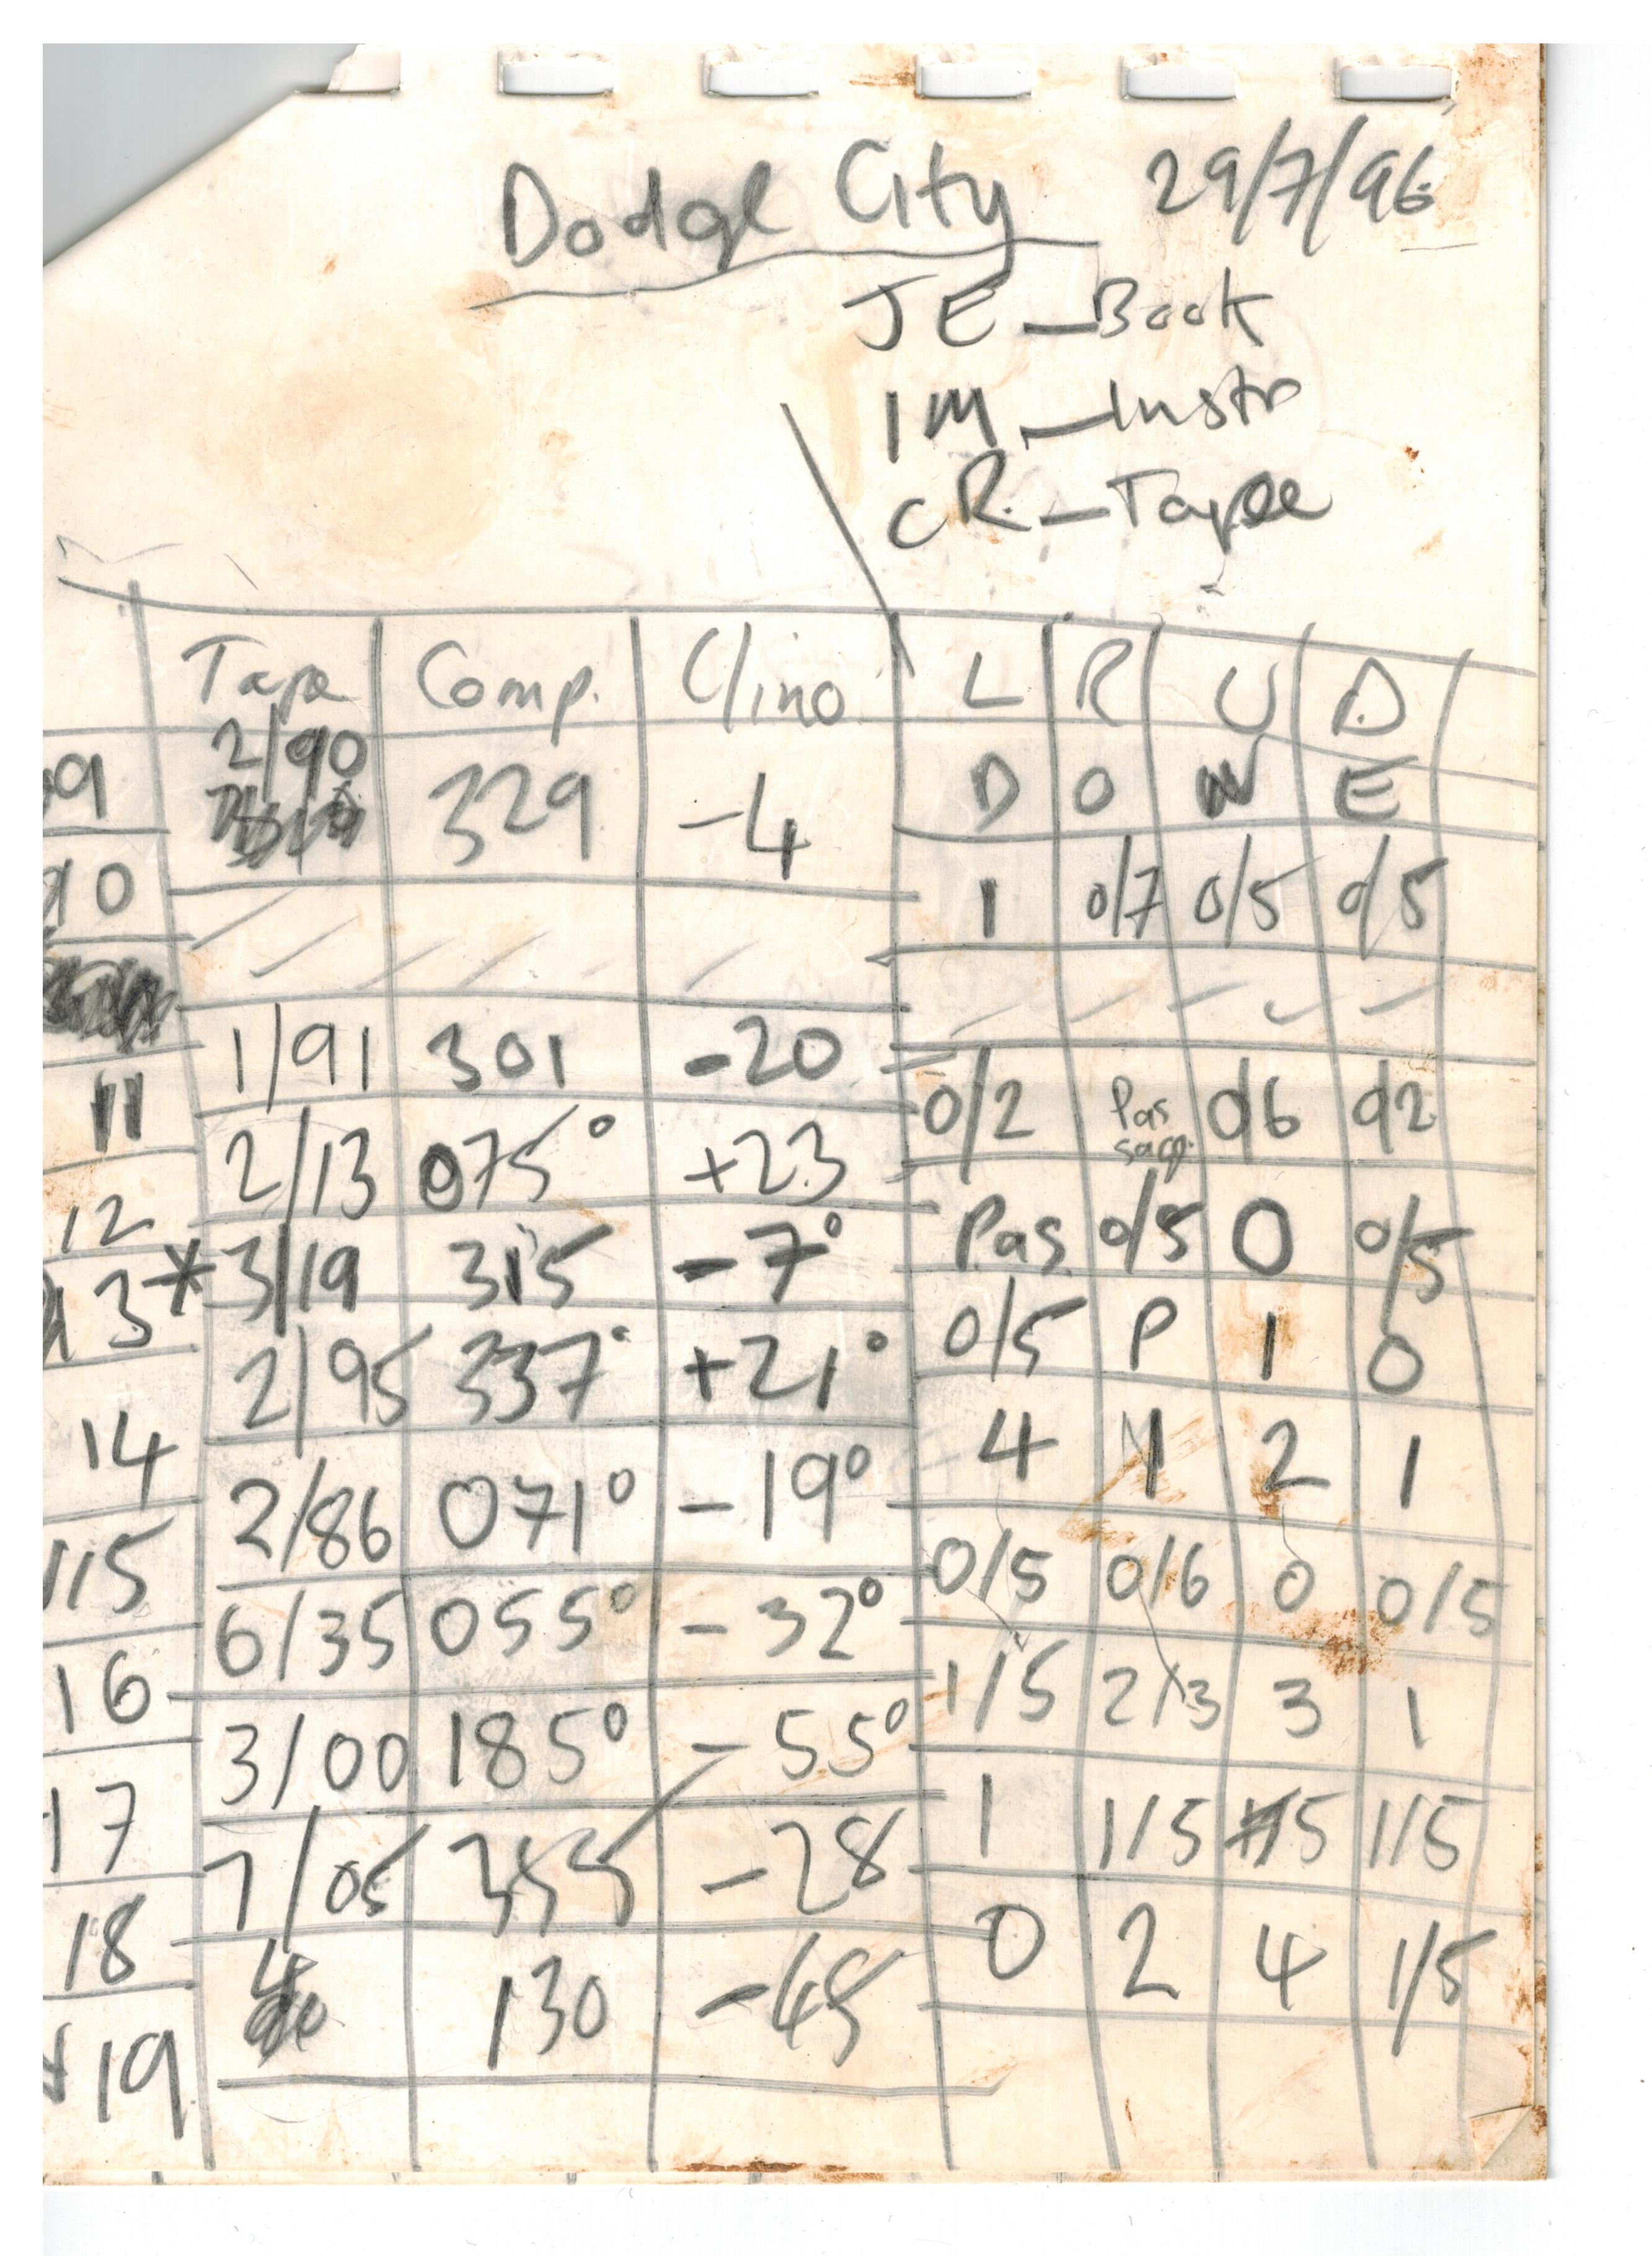 Dodge City 29/7/96
JE - Book
IM - Instr
CR. - Tape
Tape Comp. Clino L R U D
9 2/90 329 -4 D O N E
10 1 0/7 0/5 0/5
11 1/91 301 -20 0/2 Pas sage 0/6 0/2
12 2/13 075° +23 Pas 0/5 0 0/5
13 * 3/19 315 -7° 0/5 P 1 0
14 2/95 337° +21° 4 1 2 1
15 2/86 071° -19° 0/5 0/6 0 0/5
16 6/35 055° -32° 1/5 2/3 3 1
17 3/00 185° -55° 1 1/5 1/5 1/5
18 7/05 355 -28 0 2 4 1/5
19 4 130 -48